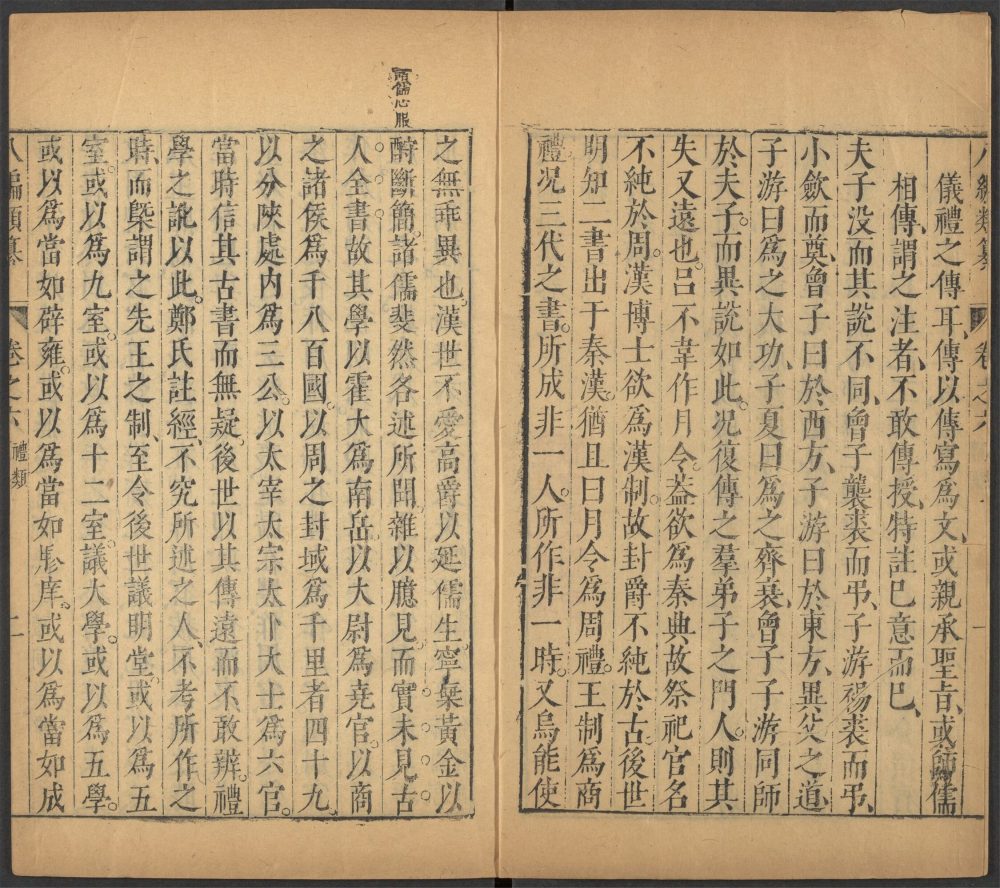 八編類纂 卷之六 一
儀禮之傳耳、傳以傳寫爲文、或親承聖旨、或師儒
相傳、謂之注者、不敢傳授、特註已意而已、
夫子没而其說不同、曾子襲裘而弔、子游裼裘而弔、
小斂而奠、曾子曰於西方、子游曰於東方、異父之道、
子游曰爲之大功、子夏曰爲之齊衰、曾子子游同師
於夫子、而異說如此、况復傳之羣弟子之門人、則其
失又遠也、吕不韋作月令、葢欲爲秦典、故祭祀官名
不純於周、漢博士欲爲漢制、故封爵不純於古、後世
明知二書出于秦漢、猶且曰月令爲周禮、王制爲商
禮、况三代之書、所成非一人、所作非一時、又烏能使
之無乖異也、漢世不愛高爵以延儒生、寧棄黃金以
酧斷簡、諸儒斐然各述所聞、雜以臆見、而實未見古
人全書、故其學以霍大爲南岳、以大尉爲堯官、以商
之諸侯爲千八百國、以周之封域爲千里者四十九、
以分陜處内爲三公、以太宰太宗太卜大士爲六官、
當時信其古書而無疑、後世以其傳遠而不敢辨、禮
學之訛以此、鄭氏註經、不究所述之人、不考所作之
時、而槩謂之先王之制、至令後世議明堂、或以爲五
室、或以爲九室、或以爲十二室、議大學、或以爲五學、
或以爲當如辟雍、或以爲當如膠庠、或以爲當如成
八編類纂 卷之六 禮類 二
諸儒心服